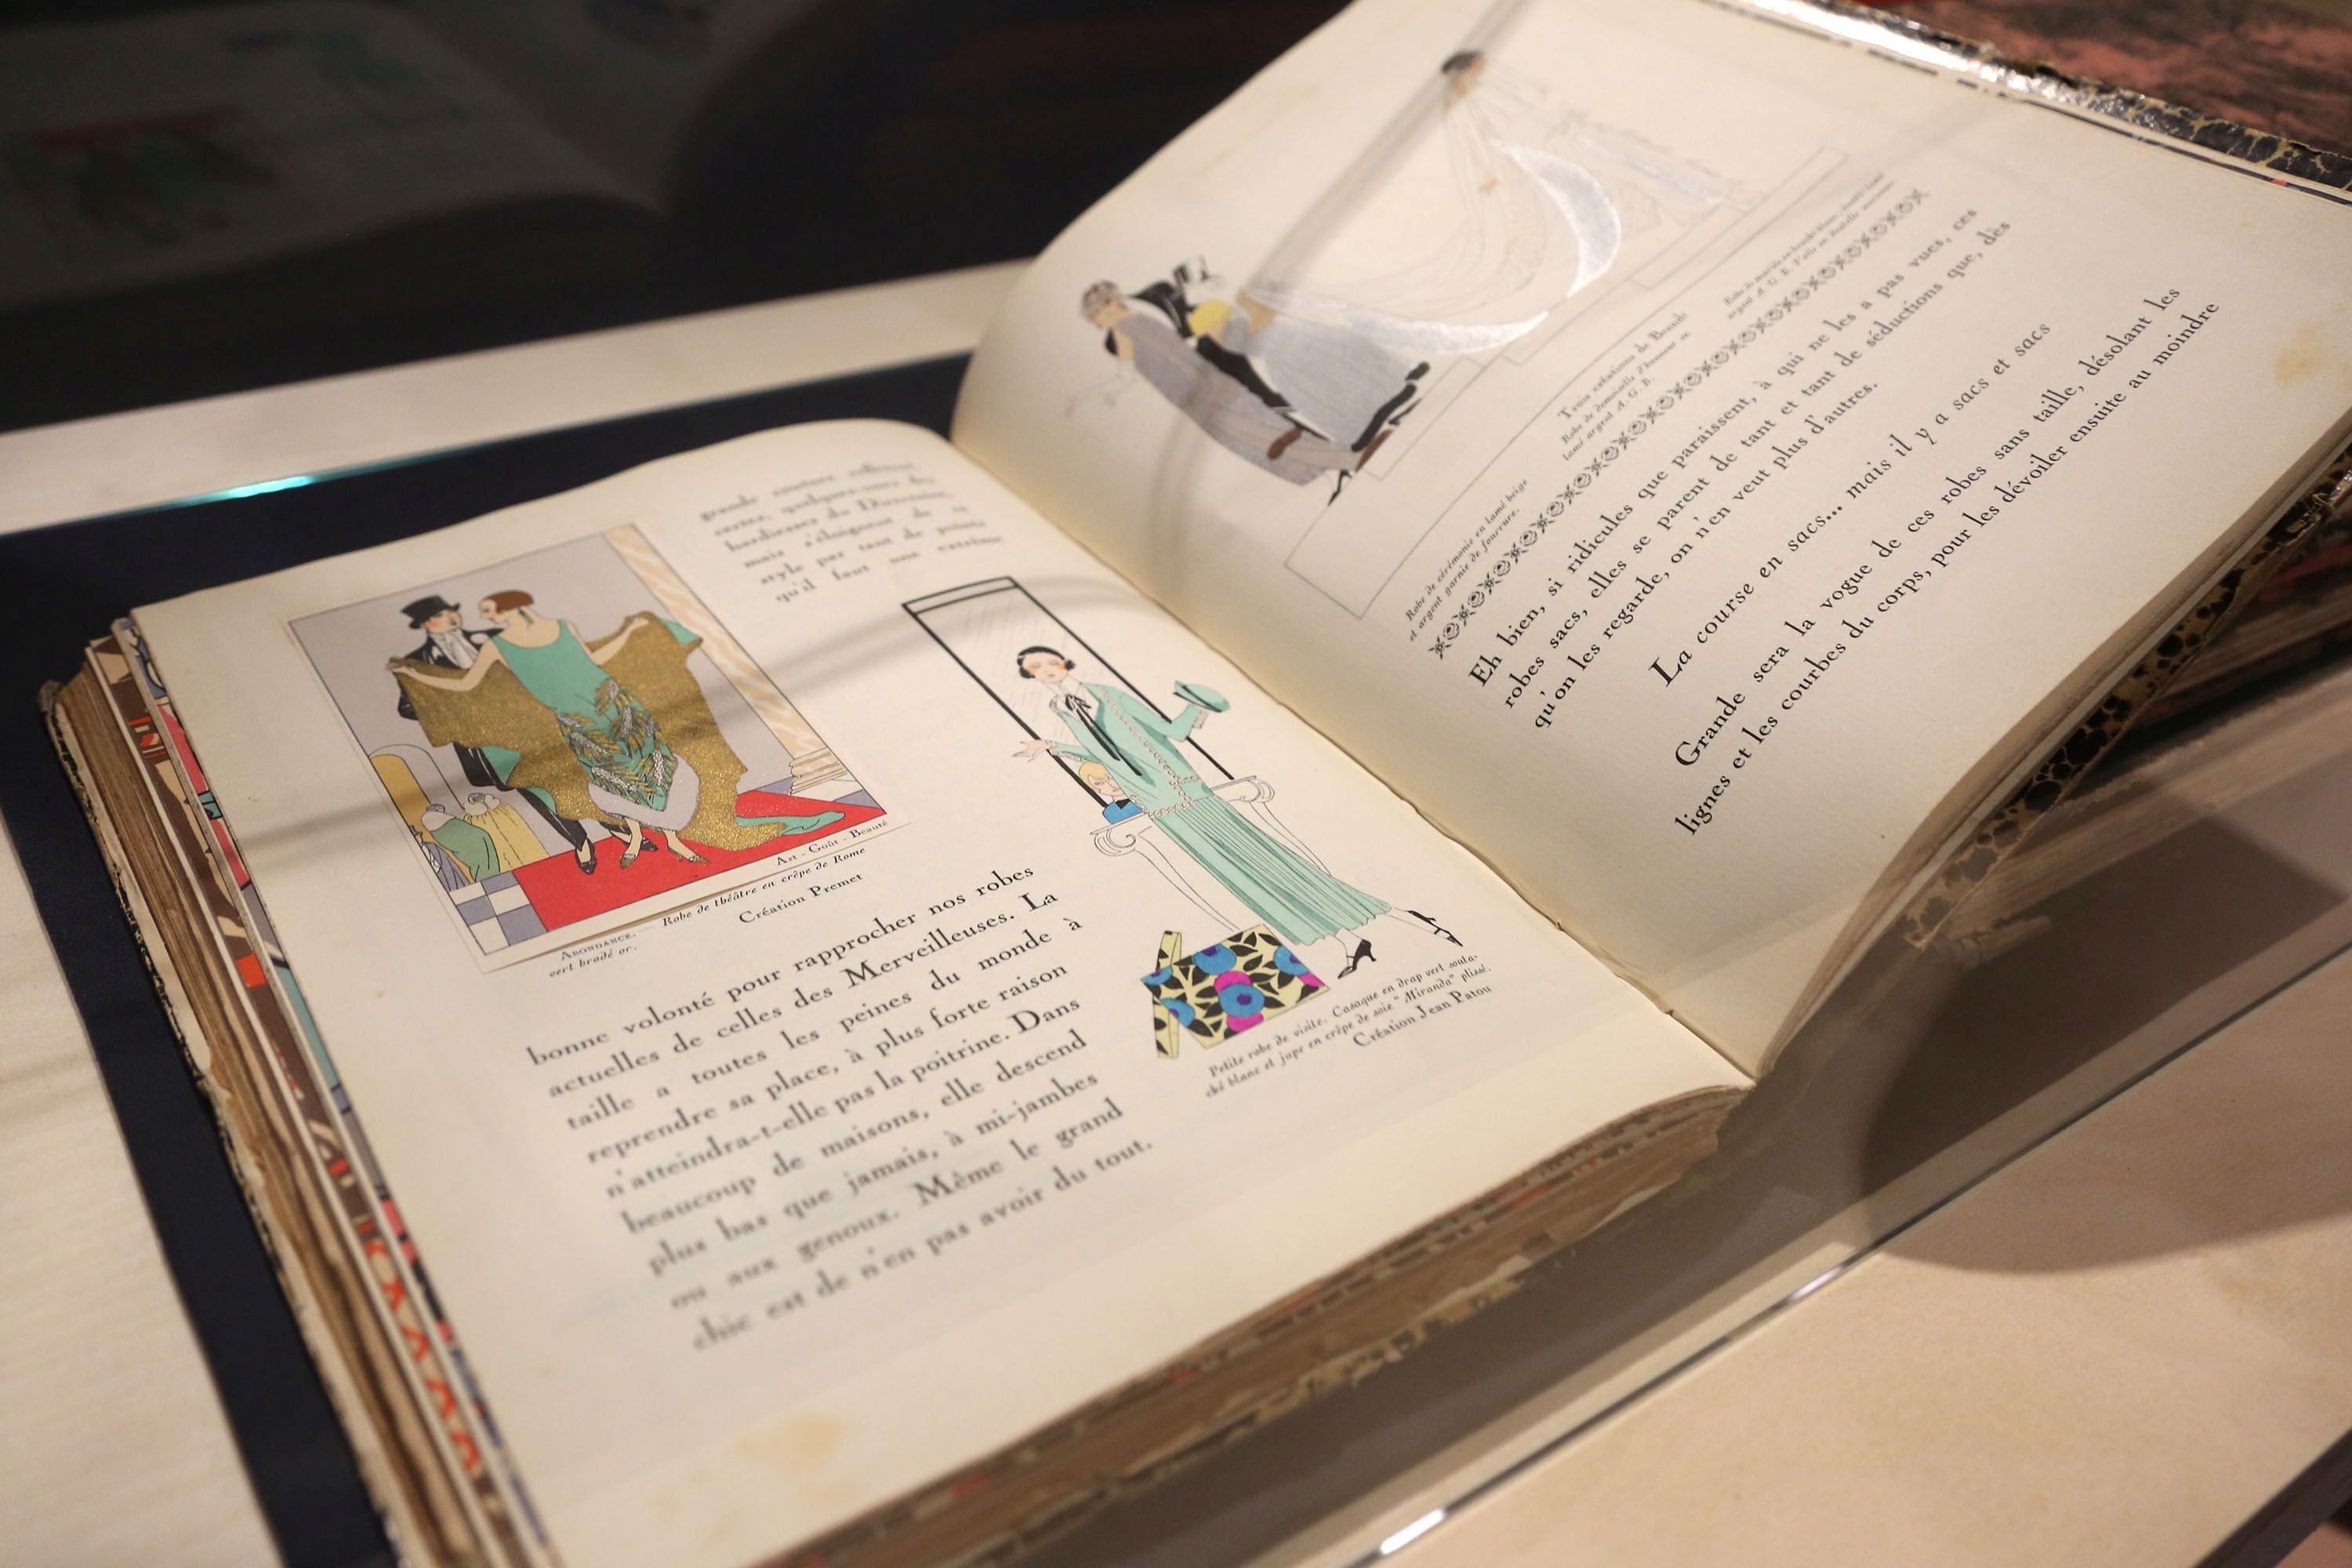 grande
certes, quelques-unes des
hardiesses du Directoire,
mais s'éloignent de ce
style par tant de points
qu'il faut une extrême
Art - Goût - Beauté
ABONDANCE. — Robe de théâtre en crêpe de Rome
vert brodé or.
Création Premet
bonne volonté pour rapprocher nos robes
actuelles de celles des Merveilleuses. La
taille a toutes les peines du monde à
reprendre sa place, à plus forte raison
n'atteindra-t-elle pas la poitrine. Dans
beaucoup de maisons, elle descend
plus bas que jamais, à mi-jambes
ou aux genoux. Même le grand
chic est de n'en pas avoir du tout.
Petite robe de visite. Casaque en drap vert souta-
ché blanc et jupe en crêpe de soie "Miranda" plissé.
Création Jean Patou
Robe de cérémonie en lamé beige
et argent garnie de fourrure.
Trois créations de Brandt
Robe de demoiselle d'honneur en
lamé argent A. G. B.
Robe de mariée en
argent A. G. B.
Eh bien, si ridicules que paraissent, à qui ne les a pas vues, ces
robes sacs, elles se parent de tant et tant de séductions que, dès
qu'on les regarde, on n'en veut plus d'autres.
La course en sacs... mais il y a sacs et sacs
Grande sera la vogue de ces robes sans taille, désolant les
lignes et les courbes du corps, pour les dévoiler ensuite au moindre